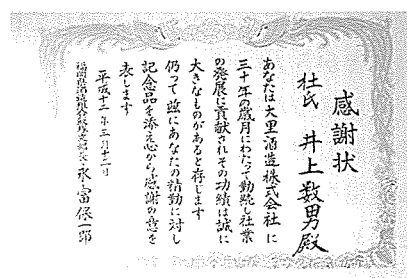 感謝状
杜氏 井上数男殿
あなたは大里酒造株式会社に
三十年の歳月にわたって勤続し社業
の発展に貢献されその功績は誠に
大きなものがあると存じます
仍って茲にあなたの精勤に対し
記念品を添え心から感謝の意を
表します
平成十二年三月十二日
福岡県酒造組合 永冨保一郎